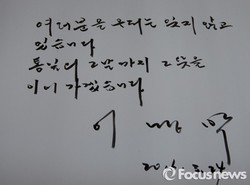 여러분을 우리는 잊지 않고
있습니다
통일의 그날까지 그 뜻을
이어 가겠습니다
이
20 . 3. 24
Focusnews